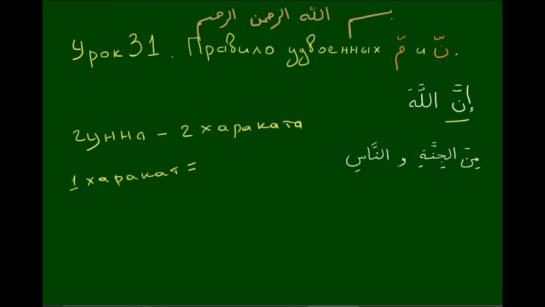 بسم الله الرحمن الرحيم
Урок 31. Правило удвоенных مّ и نّ.
إِنَّ اللَّهَ
гунна - 2 хараката
مِنَ الجِنَّةِ و النَّاسِ
1 харакат =